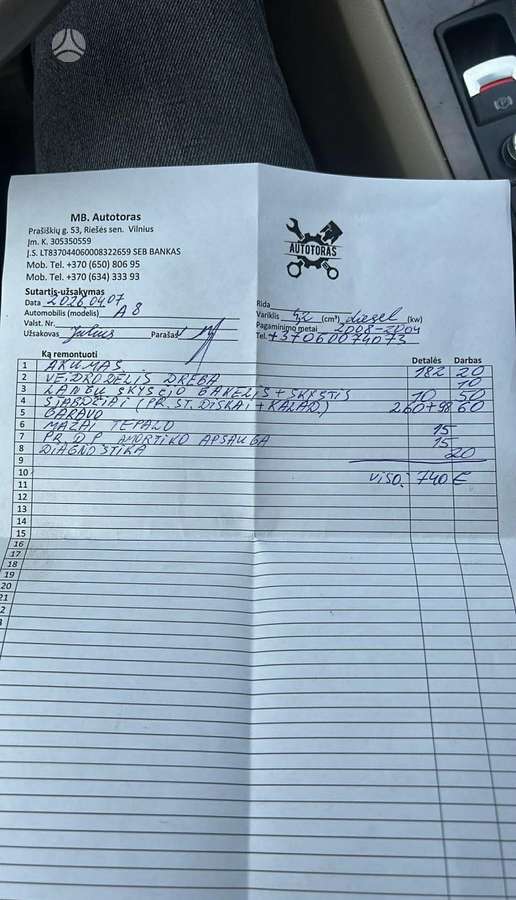 MB. Autotoras
Prašiškių g. 53, Riešės sen. Vilnius
Įm. K. 305350559
Į.S. LT837044060008322659 SEB BANKAS
Mob. Tel. +370 (650) 806 95
Mob. Tel. +370 (634) 333 93
AUTOTORAS
Sutartis-užsakymas
Data 2026 04 07
Automobilis (modelis) A8
Valst. Nr.
Užsakovas Julius Parašas
Rida
Variklis 4,2 (cm³) diesel (kw)
Pagaminimo metai 2008-2004
Tel. +37060074073
Ką remontuoti Detalės Darbas
1 AKUMAS 182 20
2 VEIDRODĖLIS DREBA 10
3 SKYSČIO + SKYSTIS 10 50
4 (PR. ST. DISKAI + KALAD.) 260+98 60
5 GARAVO
6 MAŽAI TEPALO 15
7 PR. D P AMORTIKO APSAUGA 15
8 DIAGNOSTIKA 20
9
10 VISO: 740 €
11
12
13
14
15
16
17
18
19
20
21